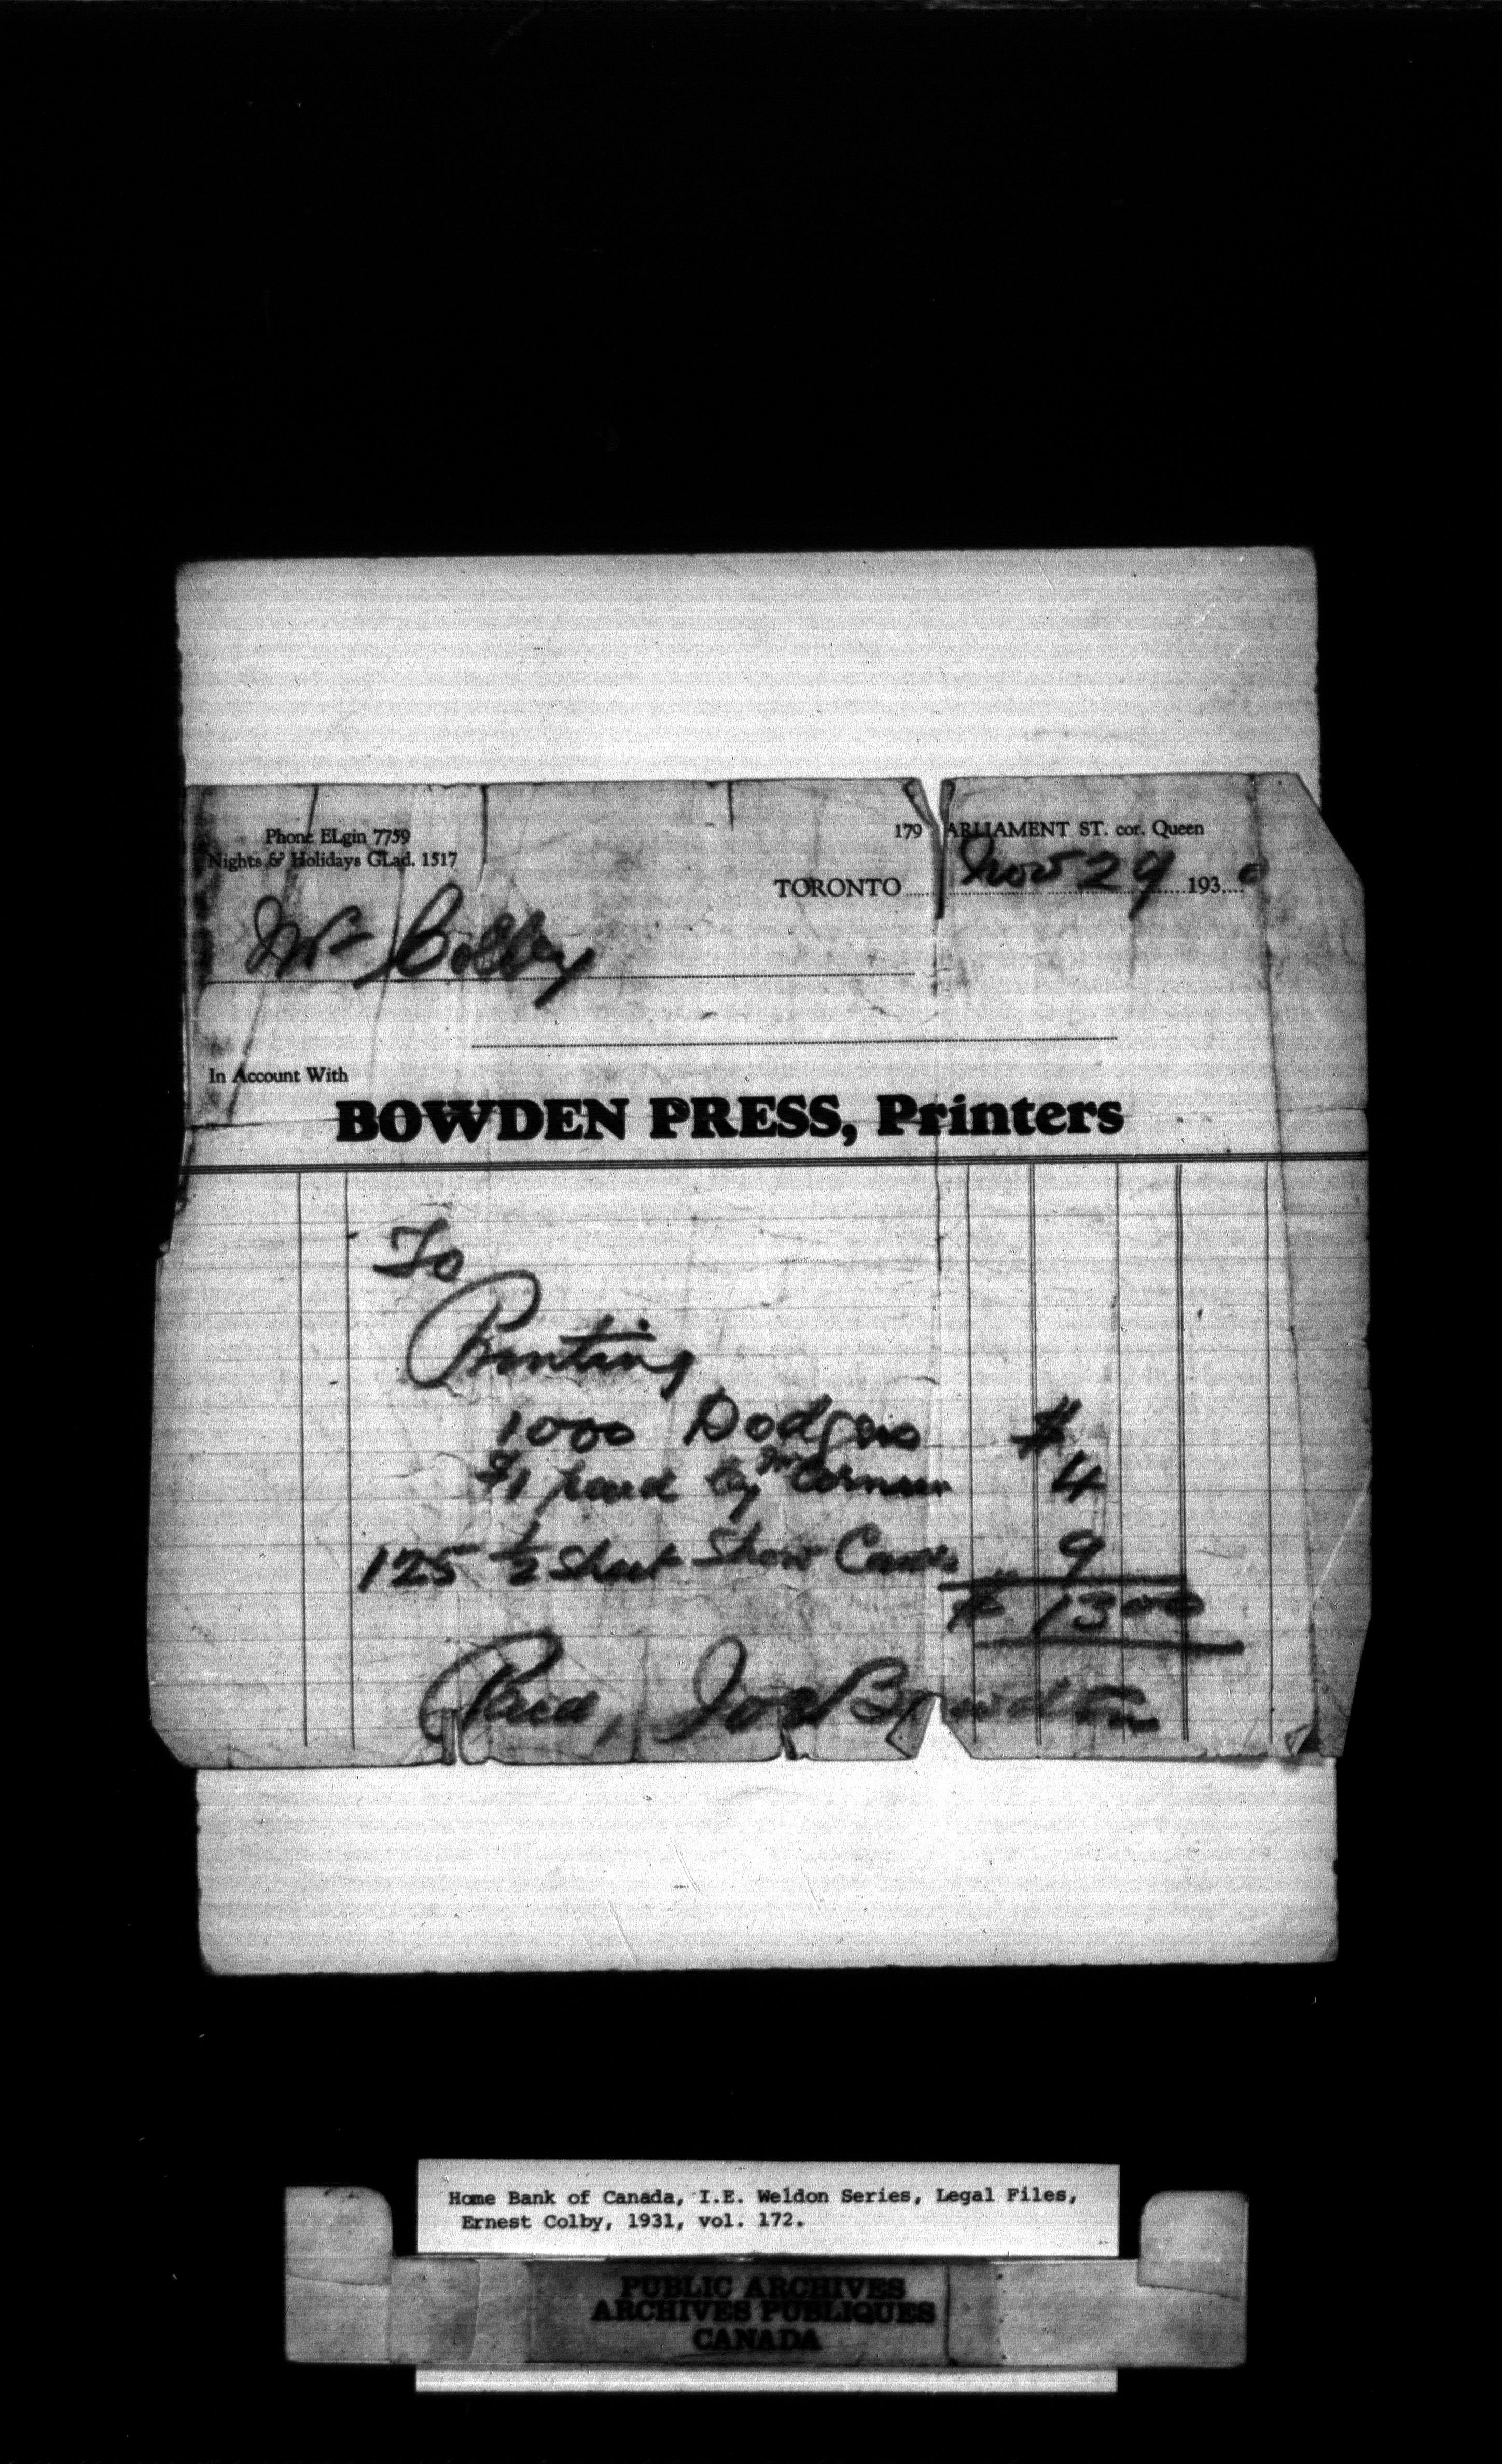 Phone ELgin 7759
Nights & Holidays GLad. 1517
179 ARLIAMENT ST. cor. Queen
TORONTO Nov 29 1930
Mr Colby
In Account With
BOWDEN PRESS, Printers
To
Printing
1000 Dodgers $
$1 paid by Mr 4
125 1/2 Sheet Show Cards 9
$ 13 00
Paid, Joe Bowden
Home Bank of Canada, I.E. Weldon Series, Legal Files,
Ernest Colby, 1931, vol. 172.
PUBLIC ARCHIVES
ARCHIVES PUBLIQUES
CANADA